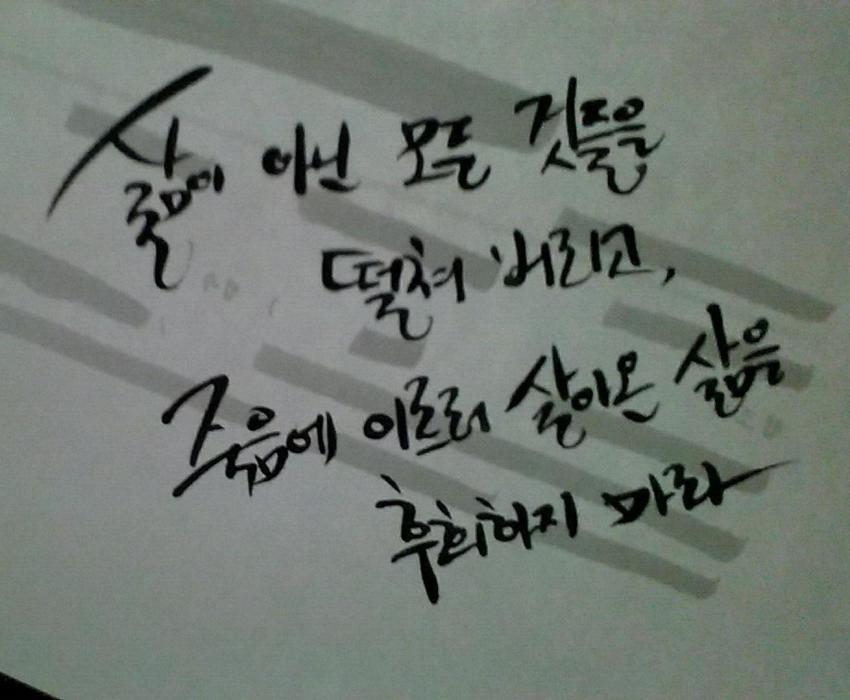 삶이 아닌 모든 것들을
떨쳐 버리고,
죽음에 이르러 살아온 삶을
후회하지 마라